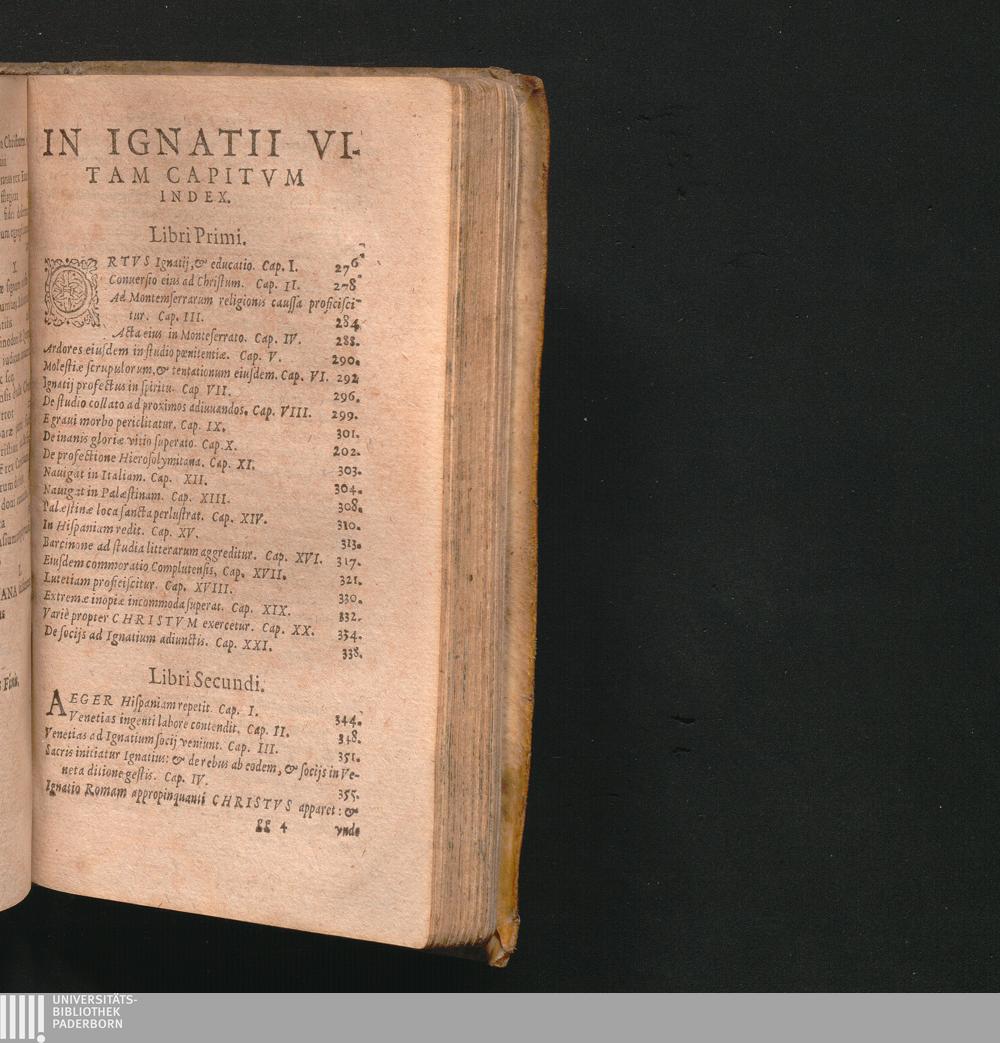 IN IGNATII VI-
TAM CAPITVM
INDEX.
Libri Primi.
ORTVS Ignatij, & educatio. Cap. I. 276
Conuersio eius ad Christum. Cap. II. 278
Ad Montemserratum religionis caussa proficisci-
tur. Cap. III. 284
Acta eius in Monteserrato. Cap. IV. 288.
Ardores eiusdem in studio pœnitentiæ. Cap. V. 290.
Molestiæ scrupulorum, & tentationum eiusdem. Cap. VI. 292
Ignatij profectus in spiritu. Cap VII. 296.
De studio collato ad proximos adiuuandos. Cap. VIII. 299.
E graui morbo periclitatur. Cap. IX. 301.
De inanis gloriæ vitio superato. Cap. X. 202.
De profectione Hierosolymitana. Cap. XI. 303.
Nauigat in Italiam. Cap. XII. 304.
Nauigat in Palæstinam. Cap. XIII. 308.
Palæstinæ loca sancta perlustrat. Cap. XIV. 310.
In Hispaniam redit. Cap. XV. 313.
Barcinone ad studia litterarum aggreditur. Cap. XVI. 317.
Eiusdem commoratio Complutensis, Cap. XVII. 321.
Lutetiam proficiscitur. Cap. XVIII. 330.
Extremæ inopiæ incommoda superat. Cap. XIX. 332.
Variè propter CHRISTVM exercetur. Cap. XX. 334.
De socijs ad Ignatium adiunctis. Cap. XXI. 338.
Libri Secundi.
AEGER Hispaniam repetit. Cap. I. 344.
Venetias ingenti labore contendit. Cap. II. 348.
Venetias ad Ignatium socij veniunt. Cap. III. 351.
Sacris initiatur Ignatius: & de rebus ab eodem, & socijs in Ve-
neta ditione gestis. Cap. IV. 355.
Ignatio Romam appropinquanti CHRISTVS apparet: &
4 vnde
UNIVERSITÄTS-
BIBLIOTHEK
PADERBORN